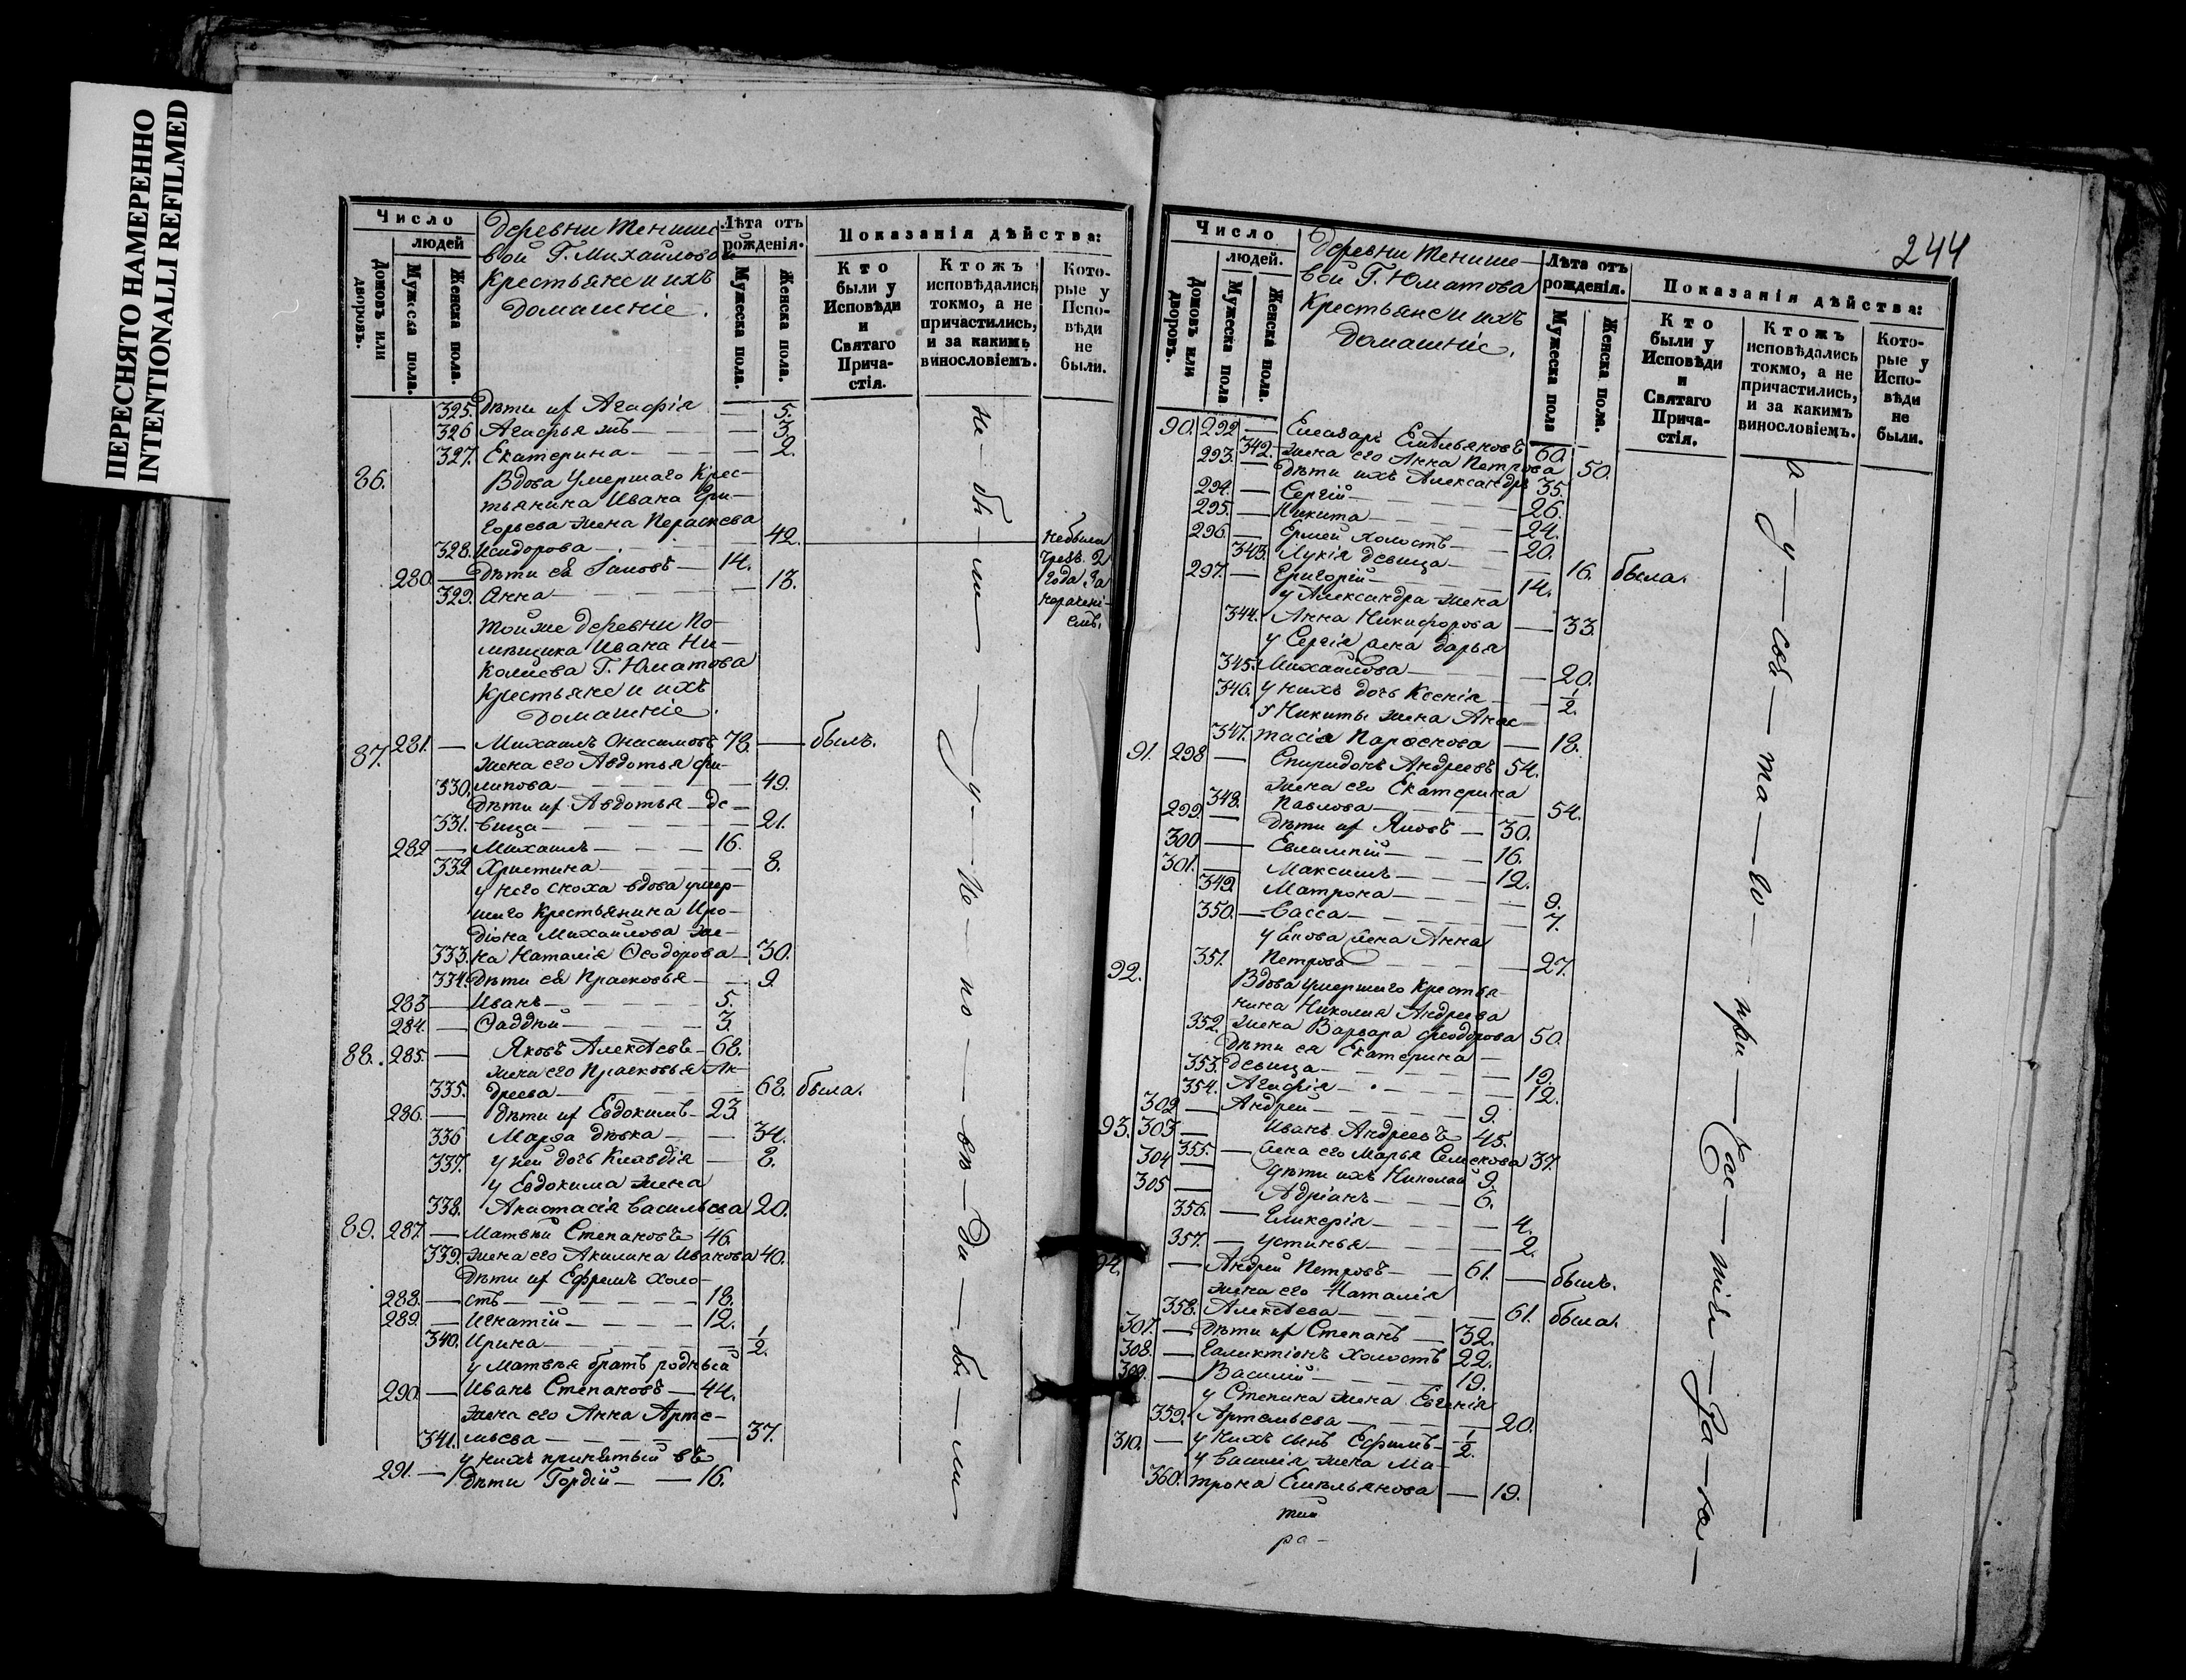 ПЕРЕСНЯТО НАМЕРЕННО
INTENTIONALLI REFILMED
Число
людей
Домовъ или дворовъ.
Мужеска пола.
Женска пола.
Деревни Тенише-
вой Г. Михайловой
Крестьяне и ихъ
Домашніе.
Лѣта отъ рожденія.
Мужеска пола.
Женска пола.
Показанія дѣйства:
Кто были у Исповѣди и Святаго Прича-стія.
Ктожъ исповѣдались токмо, а не причастились, и за какимъ винословіемъ.
Кото-рые у Испо-вѣди не были.
325. Дѣти их Агафія — 5.
326 Агафья — — 3.
327. Екатерина — — 2.
86. Вдова умершаго Крес-
тьянина Ивана Гри-
горьева жена Параскева
328. Исидорова — — 42. небыла
чрезъ 2
года за
нераден-
емъ.
280. — Дѣти ея Іаковъ — 14.
329. Анна — — 13.
Той же деревни По-
мѣщика Ивана Ни-
колаева Г. Юматова
Крестьяне и ихъ
Домашніе.
87. 281. — Михаилъ Онисимовъ 73. — былъ.
жена его Авдотья Фи-
330. липова — — 49.
Дѣти их Авдотья — де-
331. вица — — 21.
282 — Михаилъ — 16.
332 Христина — — 8.
у него сноха вдова умер-
шаго Крестьянина Иро-
діона Михайлова же-
333. на Наталія Ѳеодорова — 30.
334. Дѣти ея Прасковья — 9.
283 — Иванъ — 5.
284. — Ѳаддѣй — 3.
88. 285. — Яковъ Алексѣевъ — 68.
жена его Прасковья Ан-
335. дреева — 68. была.
286. — Дѣти их Евдокимъ — 23
336 Марѳа дѣвка — — 34.
337. у ней дочь Клавдія — 8.
у Евдокима жена
338. Анастасія Васильева 20.
89. 287. — Матвѣй Степановъ 46.
339. жена его Акилина Иванова 40.
Дѣти их Ефремъ холо-
288. — стъ — 18.
289. — Игнатій — 12.
340. Ирина — 1/2.
у Матвѣя братъ родный
290. — Иванъ Степановъ — 44.
жена его Анна Арте-
341. мьева — — 37.
у нихъ принятый въ
291. — Дѣти Гордій — 16.
244
Число
людей.
Домовъ или дворовъ.
Мужеска пола
Женска пола.
Деревни Тенише-
вой Г. Юматова
Крестьяне и ихъ
Домашніе.
Лѣта отъ рожденія.
Мужеска пола
Женска пола.
Показанія дѣйства:
Кто были у Исповѣди и Святаго Прича-стія.
Ктожъ исповѣдались токмо, а не причастились, и за какимъ винословіемъ.
Кото-рые у Испо-вѣди не были.
90. 292 — Елеазаръ Емельяновъ 60.
342. — жена его Анна Петрова 50.
293. — Дѣти ихъ Александръ 35.
294. — Сергій — 26.
295. — Никита — 24.
296. — Ермей холостъ — 20.
343. Лукія девица — 16. была.
297. — Григорій — 14.
у Александра жена
344. Анна Никифорова — 33.
у Сергія жена Дарья
345. Михайлова — 20.
346. у нихъ дочь Ксенія — 1/2.
у Никиты жена Анас-
347. тасія — 18.
91. 298 — Спиридонъ Андреевъ 54.
жена его Екатерина
348. Павлова — 54.
299. — Дѣти их Яковъ — 30.
300 — Евлампій — 16.
301. — Максимъ — 12.
349. Матрона — 9.
350. — Васса — 7.
у Якова жена Анна
351. Петрова — 27.
92. Вдова умершаго Крестья-
нина Николая Андреева
352. жена Варвара Феодорова 50.
Дѣти ея Екатерина —
353. девица — 19.
354. Агафія — 12.
302 — Андрей — 9.
93. 303 — Иванъ Андреевъ 45.
355. — жена его Марья Семенова 37.
304 — Дѣти ихъ Николай 9.
305 — Адріанъ — 6.
356. — Гликерія — 4.
357. — Устинья — 2.
94. — Андрей Петровъ — 61. — былъ.
жена его Наталія
358. Алексѣева — 61. была.
307. — Дѣти их Степанъ — 32.
308. — Галактіонъ холостъ 22.
309. — Василій — 19.
у Степана жена Евгенія
359. Артемьева — 20.
310. — у нихъ сынъ Ефимъ — 1/2.
у Василія жена Ма-
360. трона Емельянова — 19.